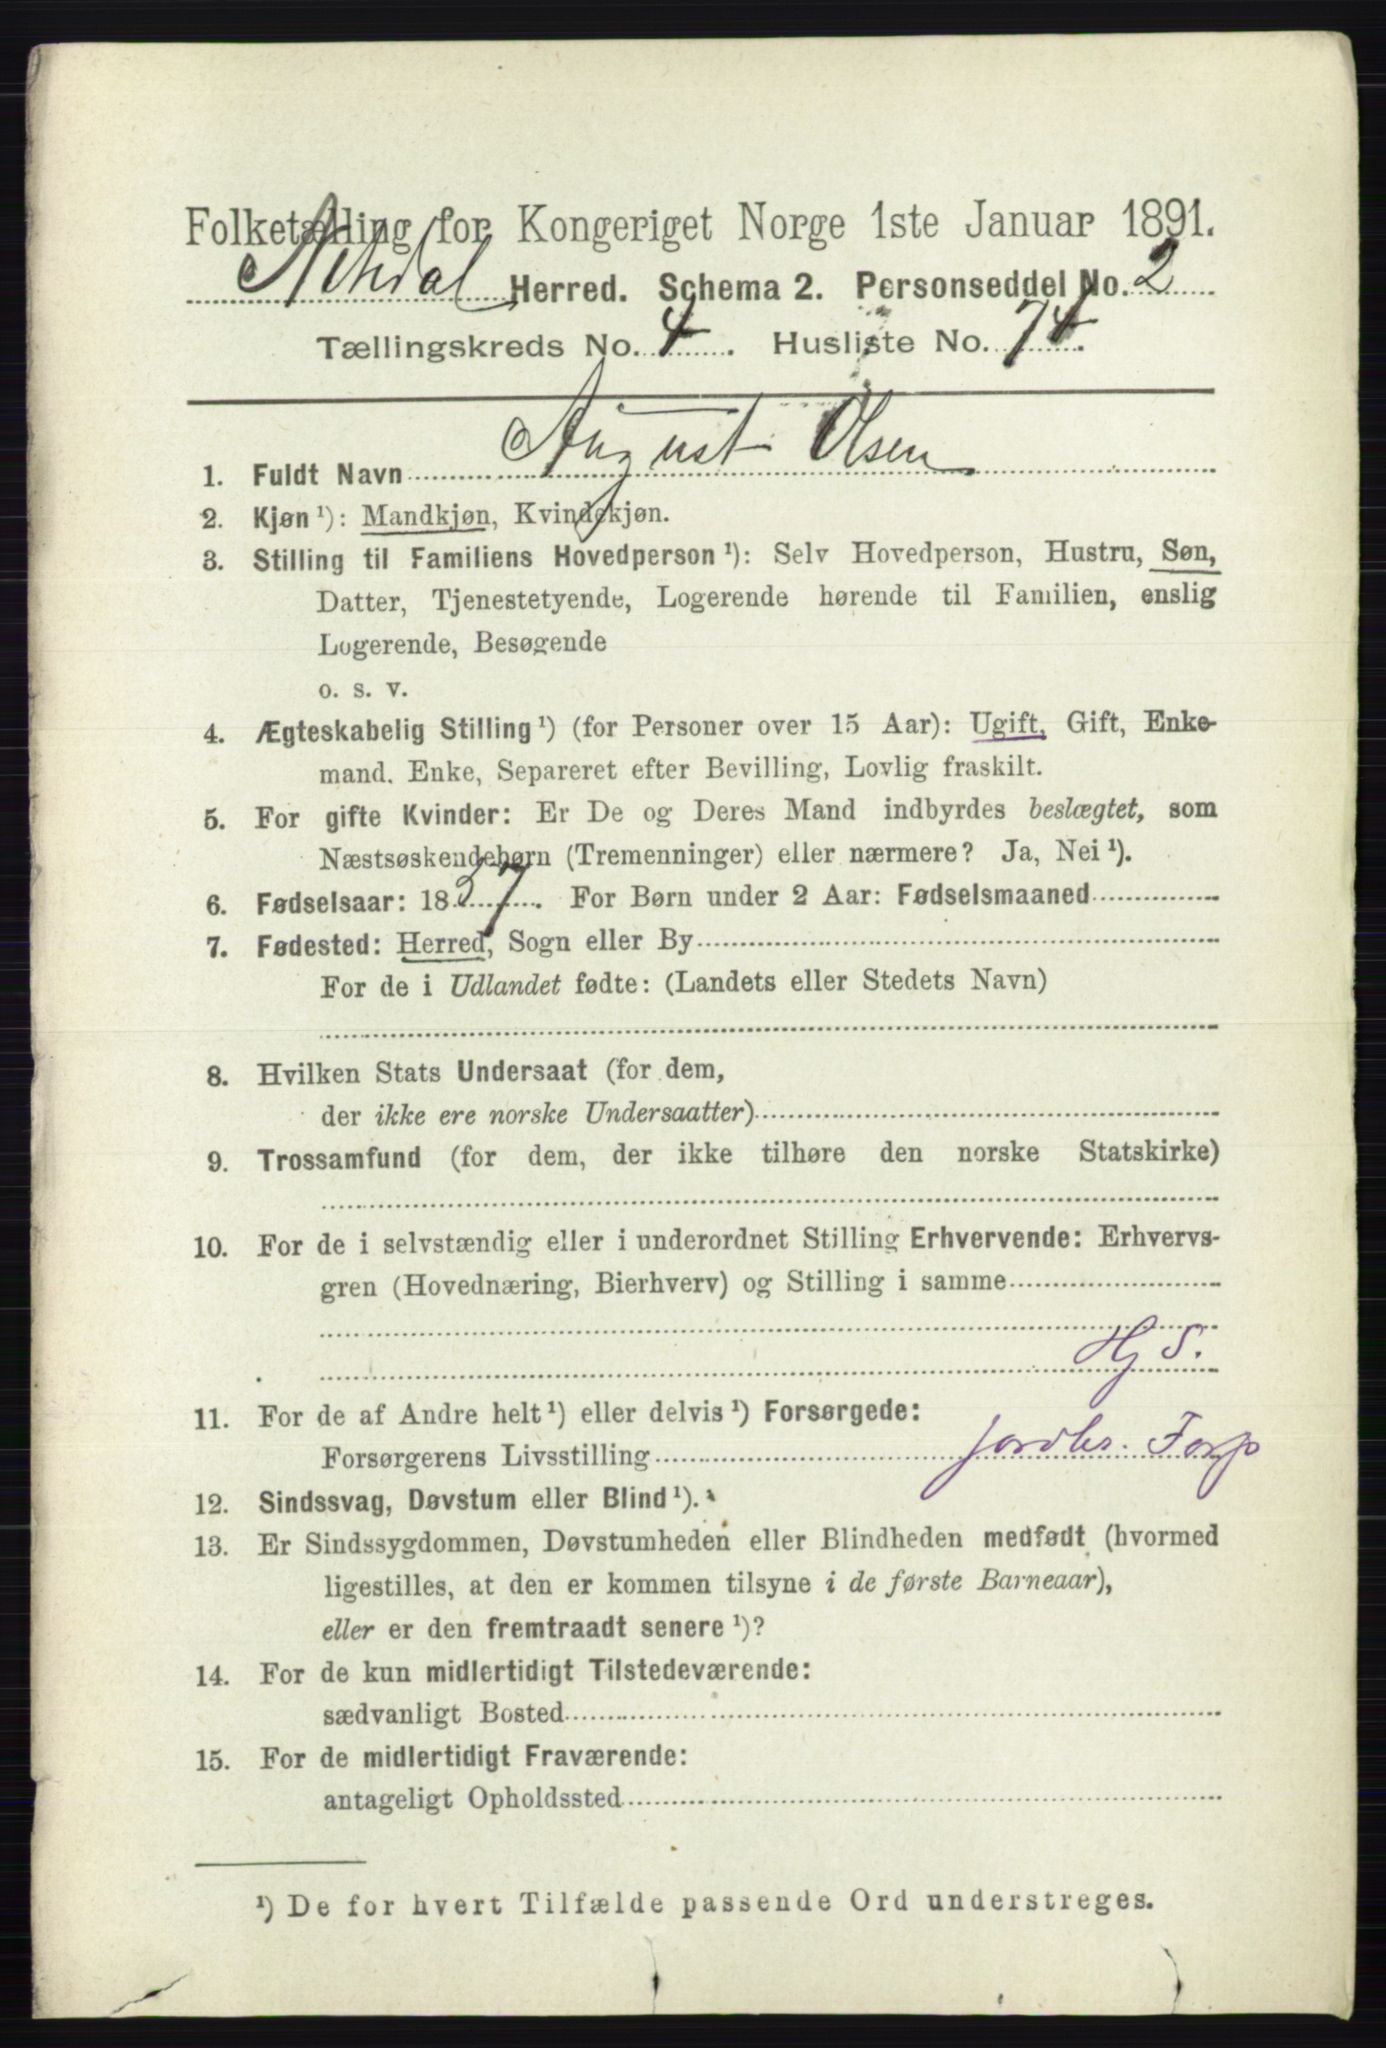 Folketælling for Kongeriget Norge 1ste Januar 1891.
Herred. Schema 2. Personseddel No. 2
Tællingskreds No. 4. Husliste No. 74.
1. Fuldt Navn August Olsen
2. Kjøn ¹): Mandkjøn, Kvindekjøn.
3. Stilling til Familiens Hovedperson ¹): Selv Hovedperson, Hustru, Søn,
Datter, Tjenestetyende, Logerende hørende til Familien, enslig
Logerende, Besøgende
o. s. v.
4. Ægteskabelig Stilling ¹) (for Personer over 15 Aar): Ugift, Gift, Enke-
mand, Enke, Separeret efter Bevilling, Lovlig fraskilt.
5. For gifte Kvinder: Er De og Deres Mand indbyrdes beslægtet, som
Næstsøskendebørn (Tremenninger) eller nærmere? Ja, Nei ¹).
6. Fødselsaar: 18 . For Børn under 2 Aar: Fødselsmaaned
7. Fødested: Herred, Sogn eller By
For de i Udlandet fødte: (Landets eller Stedets Navn)
8. Hvilken Stats Undersaat (for dem,
der ikke ere norske Undersaatter)
9. Trossamfund (for dem, der ikke tilhøre den norske Statskirke)
10. For de i selvstændig eller i underordnet Stilling Erhvervende: Erhvervs-
gren (Hovednæring, Bierhverv) og Stilling i samme
Hj S.
11. For de af Andre helt ¹) eller delvis ¹) Forsørgede:
Forsørgerens Livsstilling Jordbr. Forp
12. Sindssvag, Døvstum eller Blind ¹).
13. Er Sindssygdommen, Døvstumheden eller Blindheden medfødt (hvormed
ligestilles, at den er kommen tilsyne i de første Barneaar),
eller er den fremtraadt senere ¹)?
14. For de kun midlertidigt Tilstedeværende:
sædvanligt Bosted
15. For de midlertidigt Fraværende:
antageligt Opholdssted
¹) De for hvert Tilfælde passende Ord understreges.